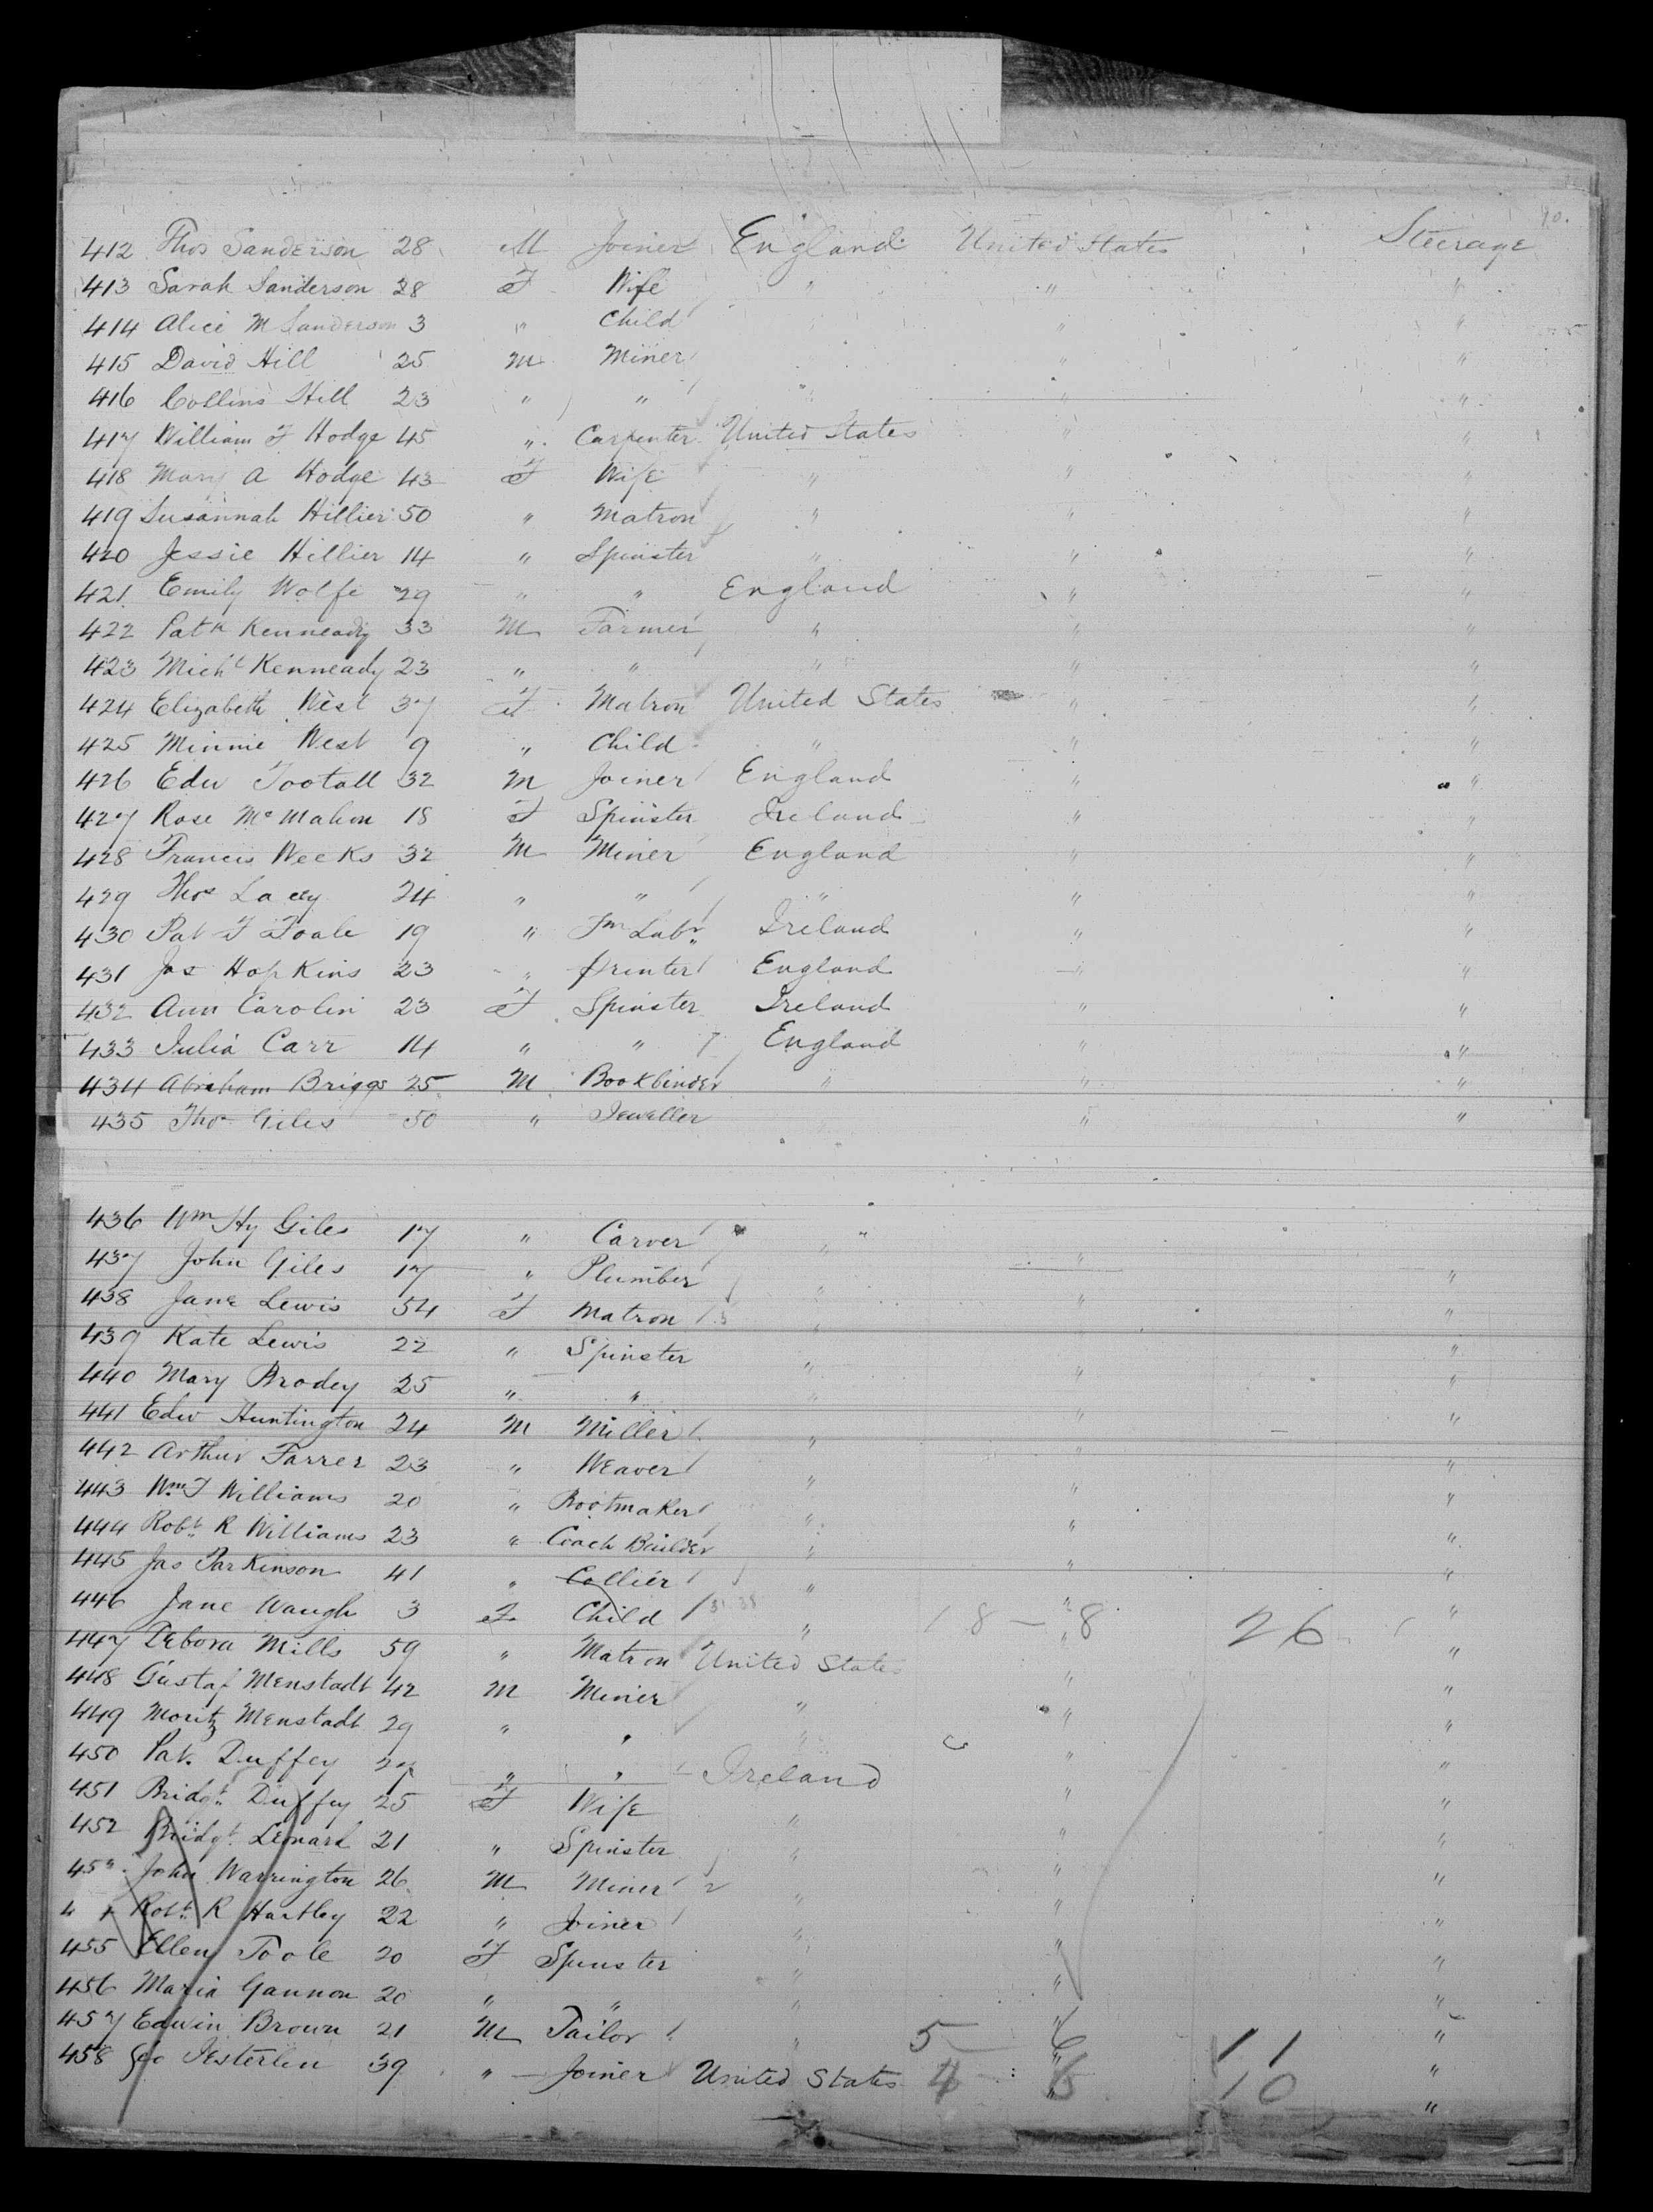 40.
412 Thos Sanderson 28 M Joiner England United States Steerage
413 Sarah Sanderson 28 F Wife " " "
414 Alice M Sanderson 3 " Child " "
415 David Hill 25 M Miner " "
416 Collins Hill 23 " " " " "
417 William F Hodge 45 " Carpenter United States " "
418 Mary A Hodge 43 F Wife " " "
419 Susannah Hillier 50 " Matron " " "
420 Jessie Hillier 14 " Spinster " " "
421 Emily Wolfe 29 " " England " "
422 Patk Kenneady 33 M Farmer " " "
423 Michl Kenneady 23 " " " " "
424 Elizabeth West 37 F Matron United States " "
425 Minnie West 9 " Child " " "
426 Edw Tootall 32 M Joiner England " "
427 Rose McMahon 18 F Spinster Ireland " "
428 Francis Weeks 32 M Miner England " "
429 Thos Lacey 24 " " " " "
430 Pat F Foale 19 " Fm Labr Ireland " "
431 Jas Hopkins 23 " Printer England " "
432 Ann Carolin 23 F Spinster Ireland " "
433 Julia Carr 14 " " England " "
434 Abraham Briggs 25 M Bookbinder " " "
435 Thos Giles 50 " Jeweller " "
436 Wm Hy Giles 17 " Carver " "
437 John Giles 17 " Plumber " " "
438 Jane Lewis 54 F Matron " " "
439 Kate Lewis 22 " Spinster " "
440 Mary Brodey 25 " " " " "
441 Edw Huntington 24 M Miller " " "
442 Arthur Farrer 23 " Weaver " " "
443 Wm J Williams 20 " Bootmaker " " "
444 Robt R Williams 23 " Coach Builder " " "
445 Jas Parkinson 41 " Collier " " "
446 Jane Waugh 3 F Child " " 18 - 8 26 "
447 Debora Mills 59 " Matron United States " "
448 Gustaf Menstadt 42 M Miner " " "
449 Moritz Menstadt 29 " " " " "
450 Pat. Duffey 27 " " Ireland " "
451 Bridgt Duffey 25 F Wife " " "
452 Bridgt Lenard 21 " Spinster " " "
45 John Warrington 26 M Miner 2 " " "
4 Robt R Hartley 22 " Joiner " " "
455 Ellen Toole 20 F Spinster " " "
456 Maria Gannon 20 " " " " "
457 Edwin Brown 21 M Tailor " 5 - 6 " 11 "
458 Geo 39 " Joiner United States 4 - 6 " 10 "